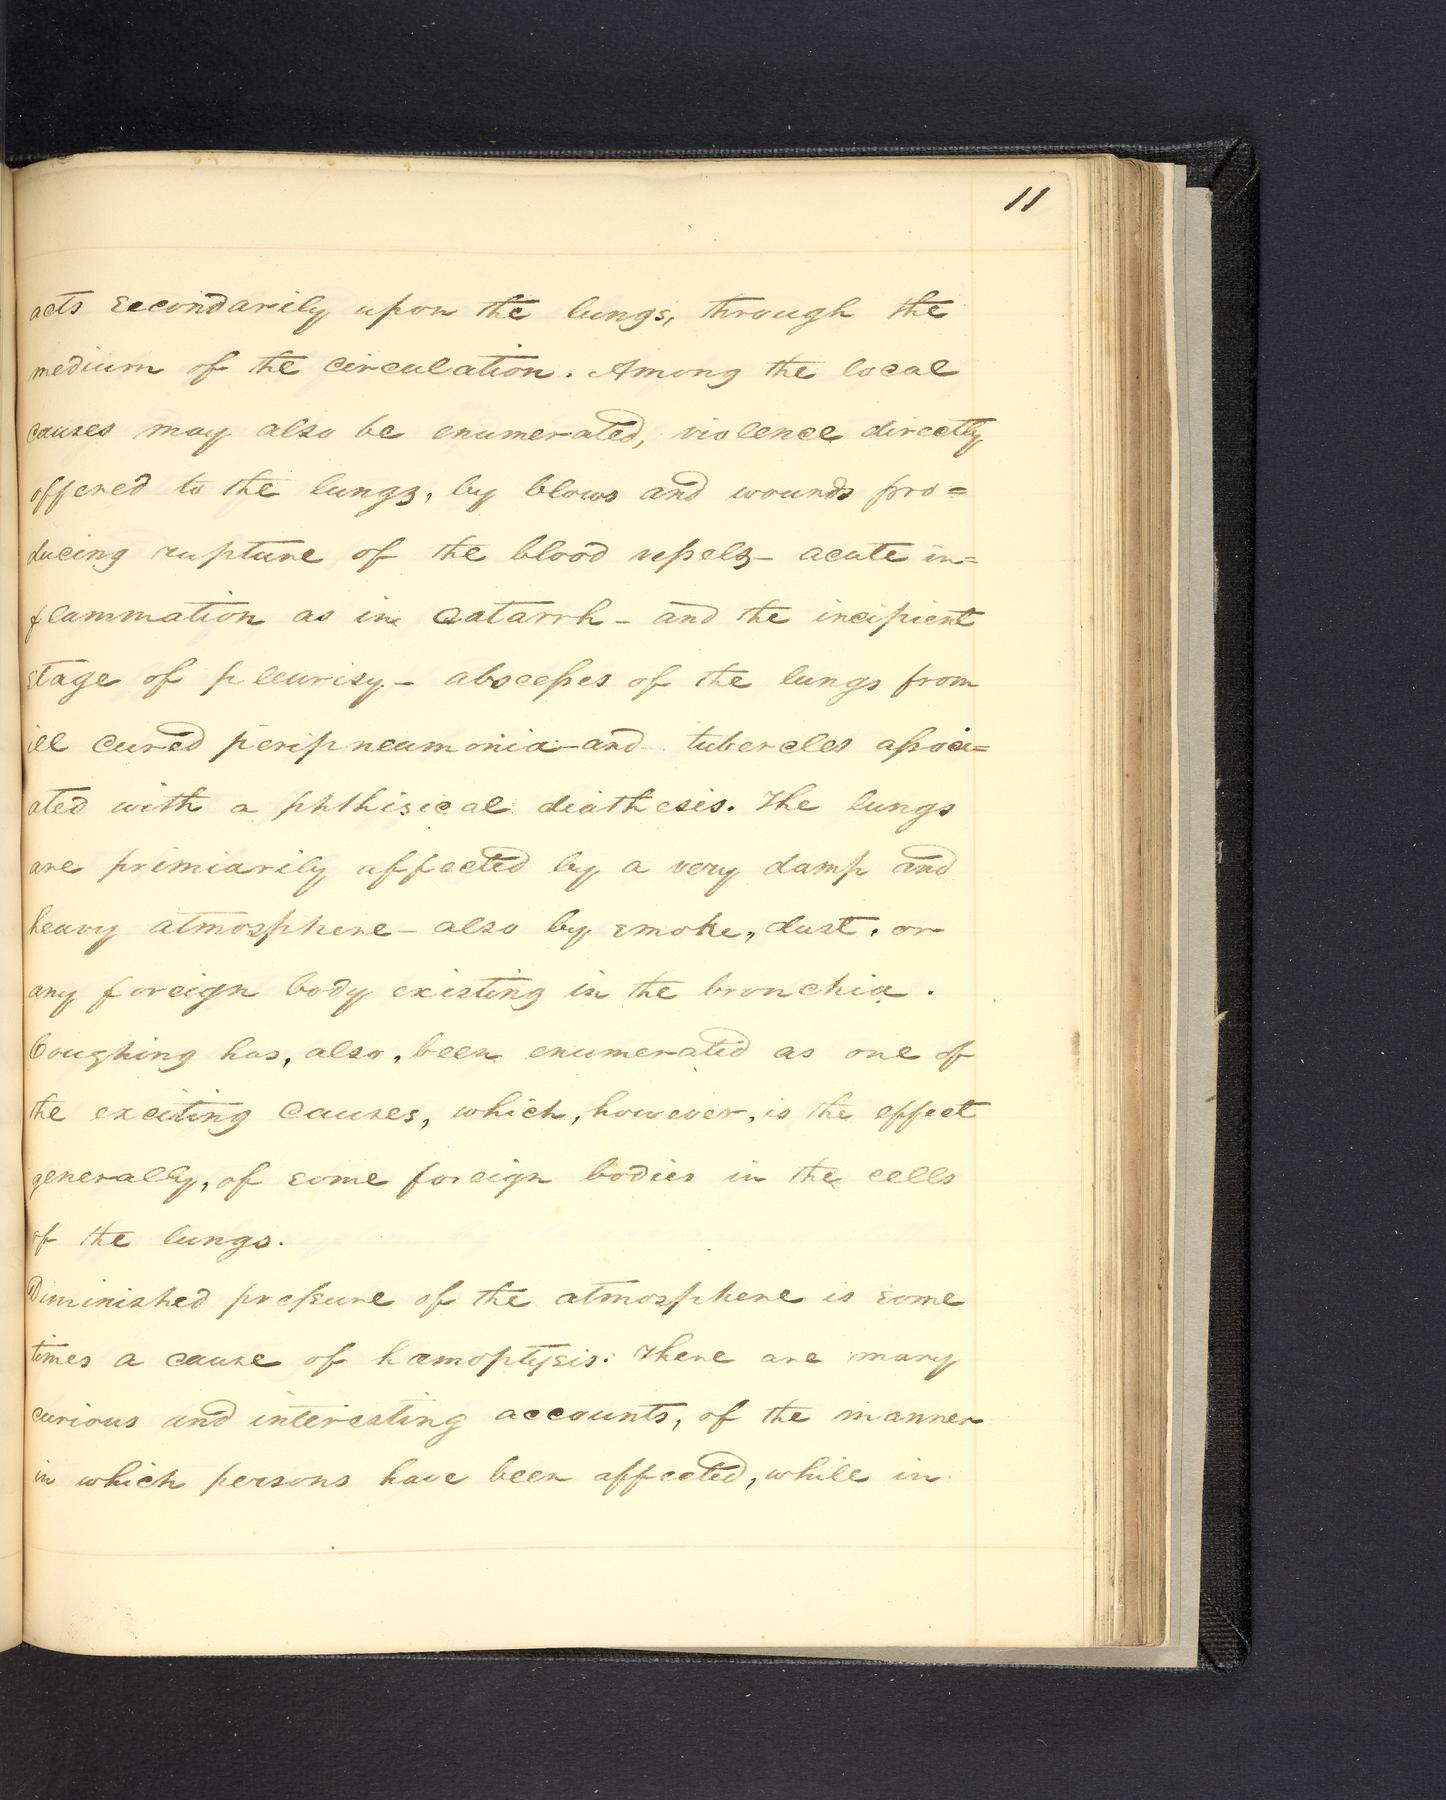 11
acts secondarily upon the lungs, through the
medium of the circulation. Among the local
causes may also be enumerated, violence directly
offered to the lungs, by blows and wounds pro=
ducing rupture of the blood vessels - acute in=
flammation as in Catarrh - and the incipient
stage of pleurisy - abscesses of the lungs from
ill cured peripneumonia - and tubercles associ=
ated with a phthisical diathesis. The lungs
are primiarily affected by a very damp and
heavy atmosphere - also by smoke, dust, or
any foreign body existing in the bronchia.
Coughing has, also, been enumerated as one of
the exciting causes, which, however, is the effect
generally, of some foreign bodies in the cells
of the lungs.
Diminished pressure of the atmosphere is some
times a cause of hæmoptysis. There are many
curious and interesting accounts, of the manner
in which persons have been affected, while in